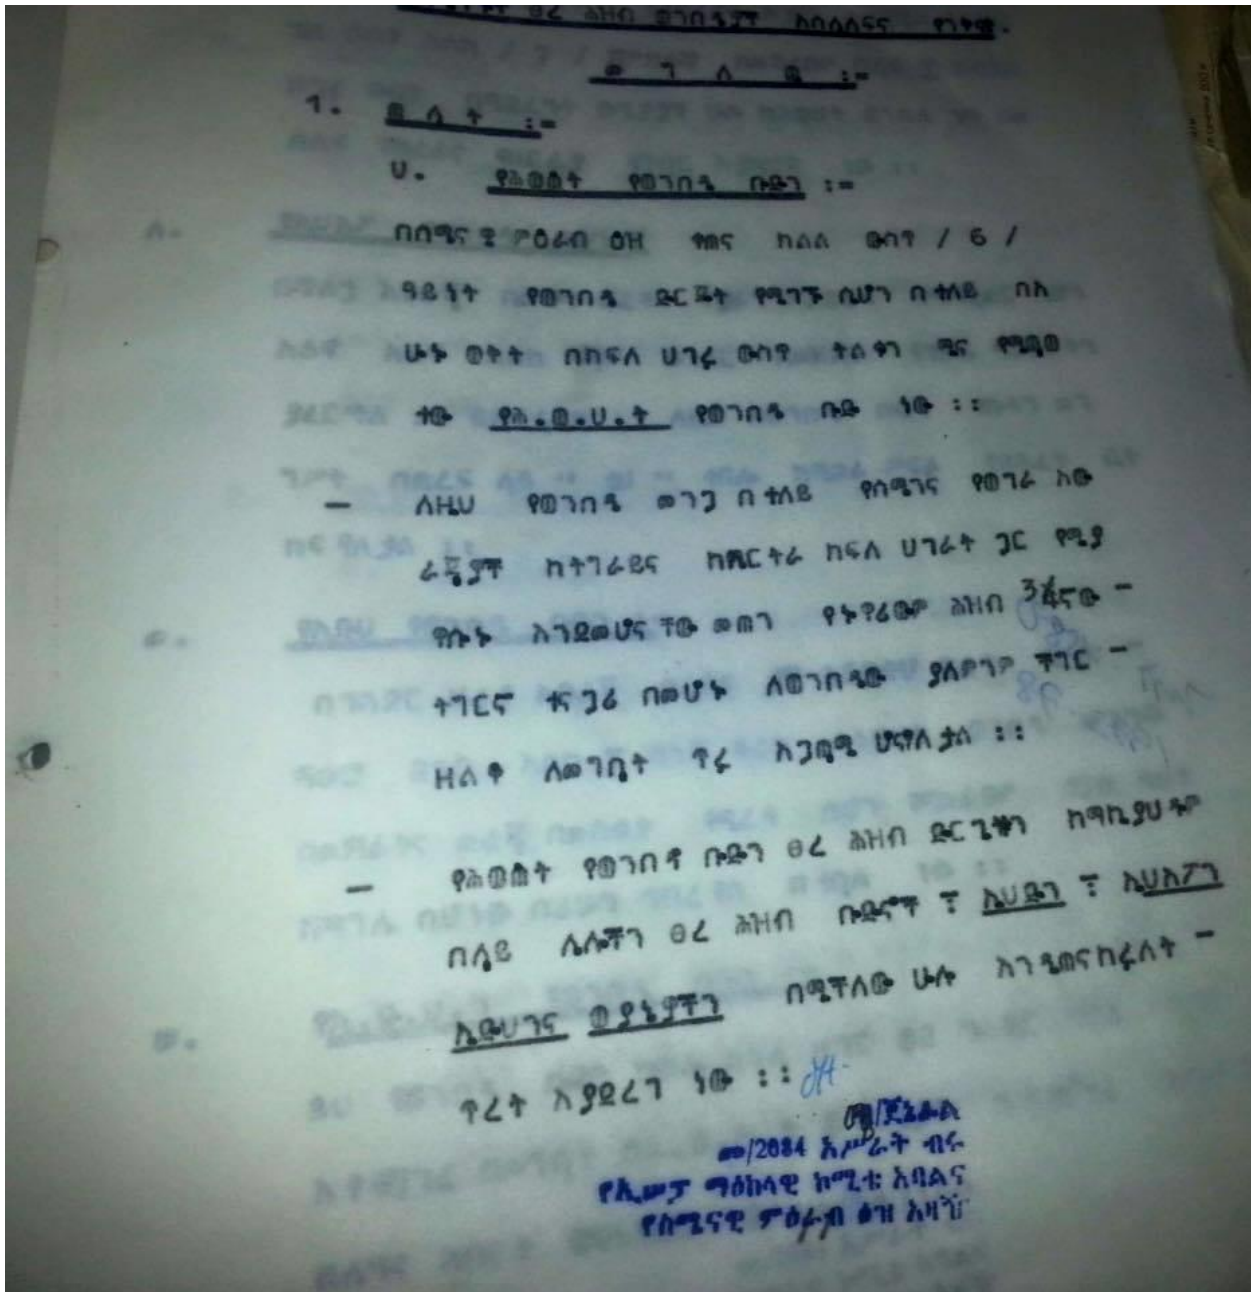 ፀረ ሕዝብ ወንበዴዎች አሰላለፍና የነሞዌ.
1. ወ ሊ ት :-
ሀ. የሕወሐት የወንበዴ ቡድን :-
በሰሜናዊ ምዕራብ ዕዝ ቀጠና ክልል ውስጥ / 6 /
ዓይነት የወንበዴ ድርጅት የሚገኙ ሲሆን በተለይ በአ
ሁኑ ወቅት በክፍለ ሀገሩ ውስጥ ተልቀን ሚና የሚጫወ
ተው የሕ.ወ.ሀ.ት የወንበዴ ቡድ ነው ::
— ለዚህ የወንበዴ መንጋ በተለይ የሰሜንና የወገራ አው
ራጃዎች ከትግራይና ከኤርትራ ክፍለ ሀገራት ጋር የሚያ
ዋስኑ እንደመሆናቸው መጠን የኑዋሪውም ሕዝብ 3/4ኛው -
ትግርኛ ተናጋሪ በመሆኑ ለወንበዴው ያለምንም ችግር -
ዘልቆ ለመግባት ጥሩ አጋጣሚ ሆኖለታል ::
— የሕወሐት የወንበዴ ቡድን ፀረ ሕዝብ ድርጊቱን ከማኪያሄዱም
በላይ ሌሎችን ፀረ ሕዝብ ቡድኖች ፣ ኢህዴን ፣ ኢህአፓን
ኢዲህንና ወያኔዎችን በሚችለው ሁሉ እንዲጠናከሩለት -
ጥረት እያደረገ ነው ::
ሜ/ጀኔራል
መ/2084 አሥራት ብሩ
የኢሠፓ ማዕከላዊ ኮሚቴ አባልና
የሰሜናዊ ምዕራብ ዕዝ አዛዥ